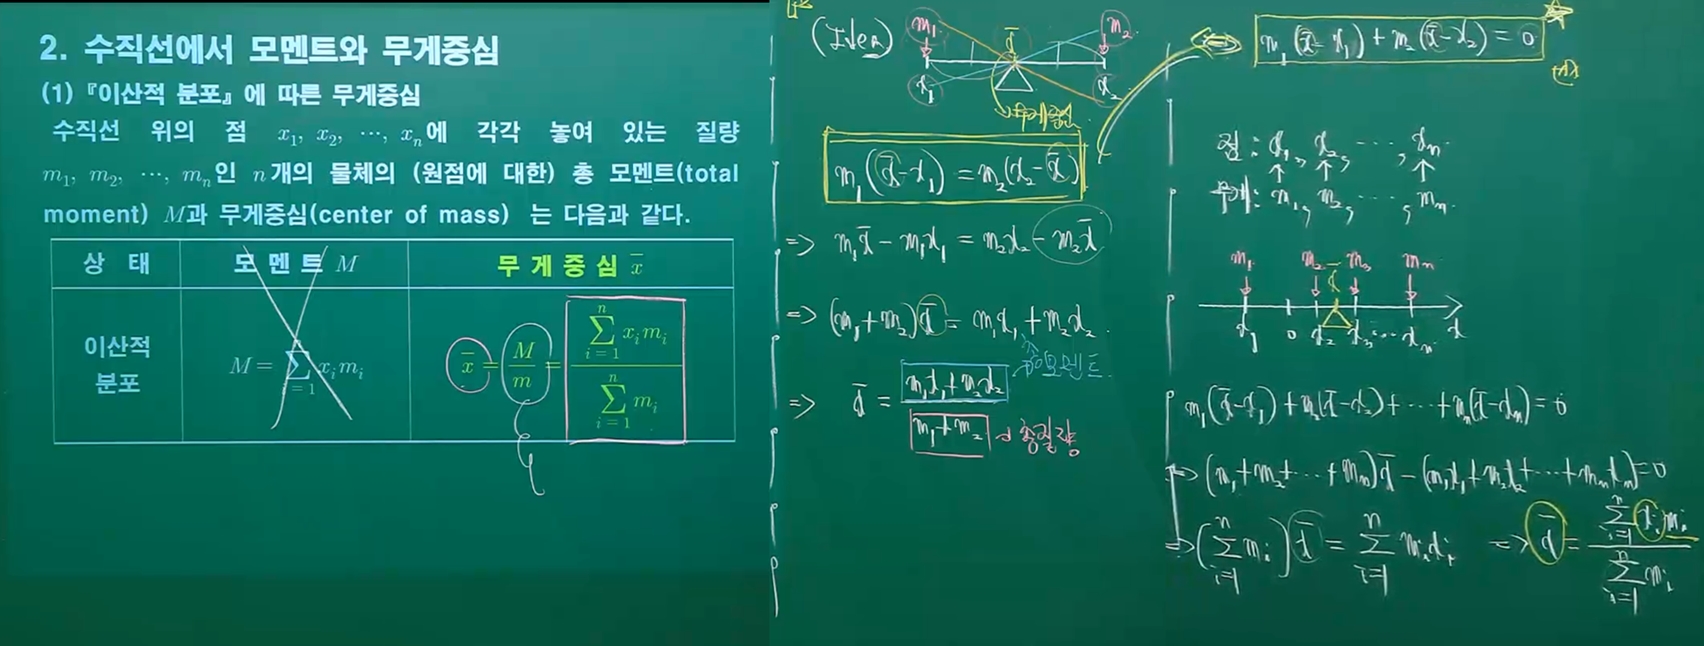 2. 수직선에서 모멘트와 무게중심
(1) 『이산적 분포』에 따른 무게중심
수직선 위의 점 x₁, x₂, ⋯, xₙ에 각각 놓여 있는 질량
m₁, m₂, ⋯, mₙ인 n개의 물체의 (원점에 대한) 총 모멘트(total
moment) M과 무게중심(center of mass) 는 다음과 같다.
상 태 모 멘 트 M 무 게 중 심 x̄
이산적 분포 M = ∑ᵢ₌₁ⁿ xᵢmᵢ x̄ = M/m = ∑ᵢ₌₁ⁿ xᵢmᵢ / ∑ᵢ₌₁ⁿ mᵢ
(Idea) m₁ x̄ m₂
x₁ x₂
무게중심
m₁(x̄-x₁) = m₂(x₂-x̄)
=> m₁x̄ - m₁x₁ = m₂x₂ - m₂x̄
=> (m₁+m₂)x̄ = m₁x₁+m₂x₂
=> x̄ = m₁x₁+m₂x₂ / m₁+m₂
총모멘트
총질량
m₁(x̄-x₁) + m₂(x̄-x₂) = 0
점 : x₁, x₂, ⋯, xₙ
무게 : m₁, m₂, ⋯, mₙ
m₁ m₂ x̄ m₃ mₙ
x₁ 0 x₂ x₃ ⋯ xₙ x
m₁(x̄-x₁) + m₂(x̄-x₂) + ⋯ + mₙ(x̄-xₙ) = 0
=> (m₁+m₂+⋯+mₙ)x̄ - (m₁x₁+m₂x₂+⋯+mₙxₙ) = 0
=> (∑ᵢ₌₁ⁿ mᵢ) x̄ = ∑ᵢ₌₁ⁿ mᵢxᵢ => x̄ = ∑ᵢ₌₁ⁿ xᵢmᵢ / ∑ᵢ₌₁ⁿ mᵢ